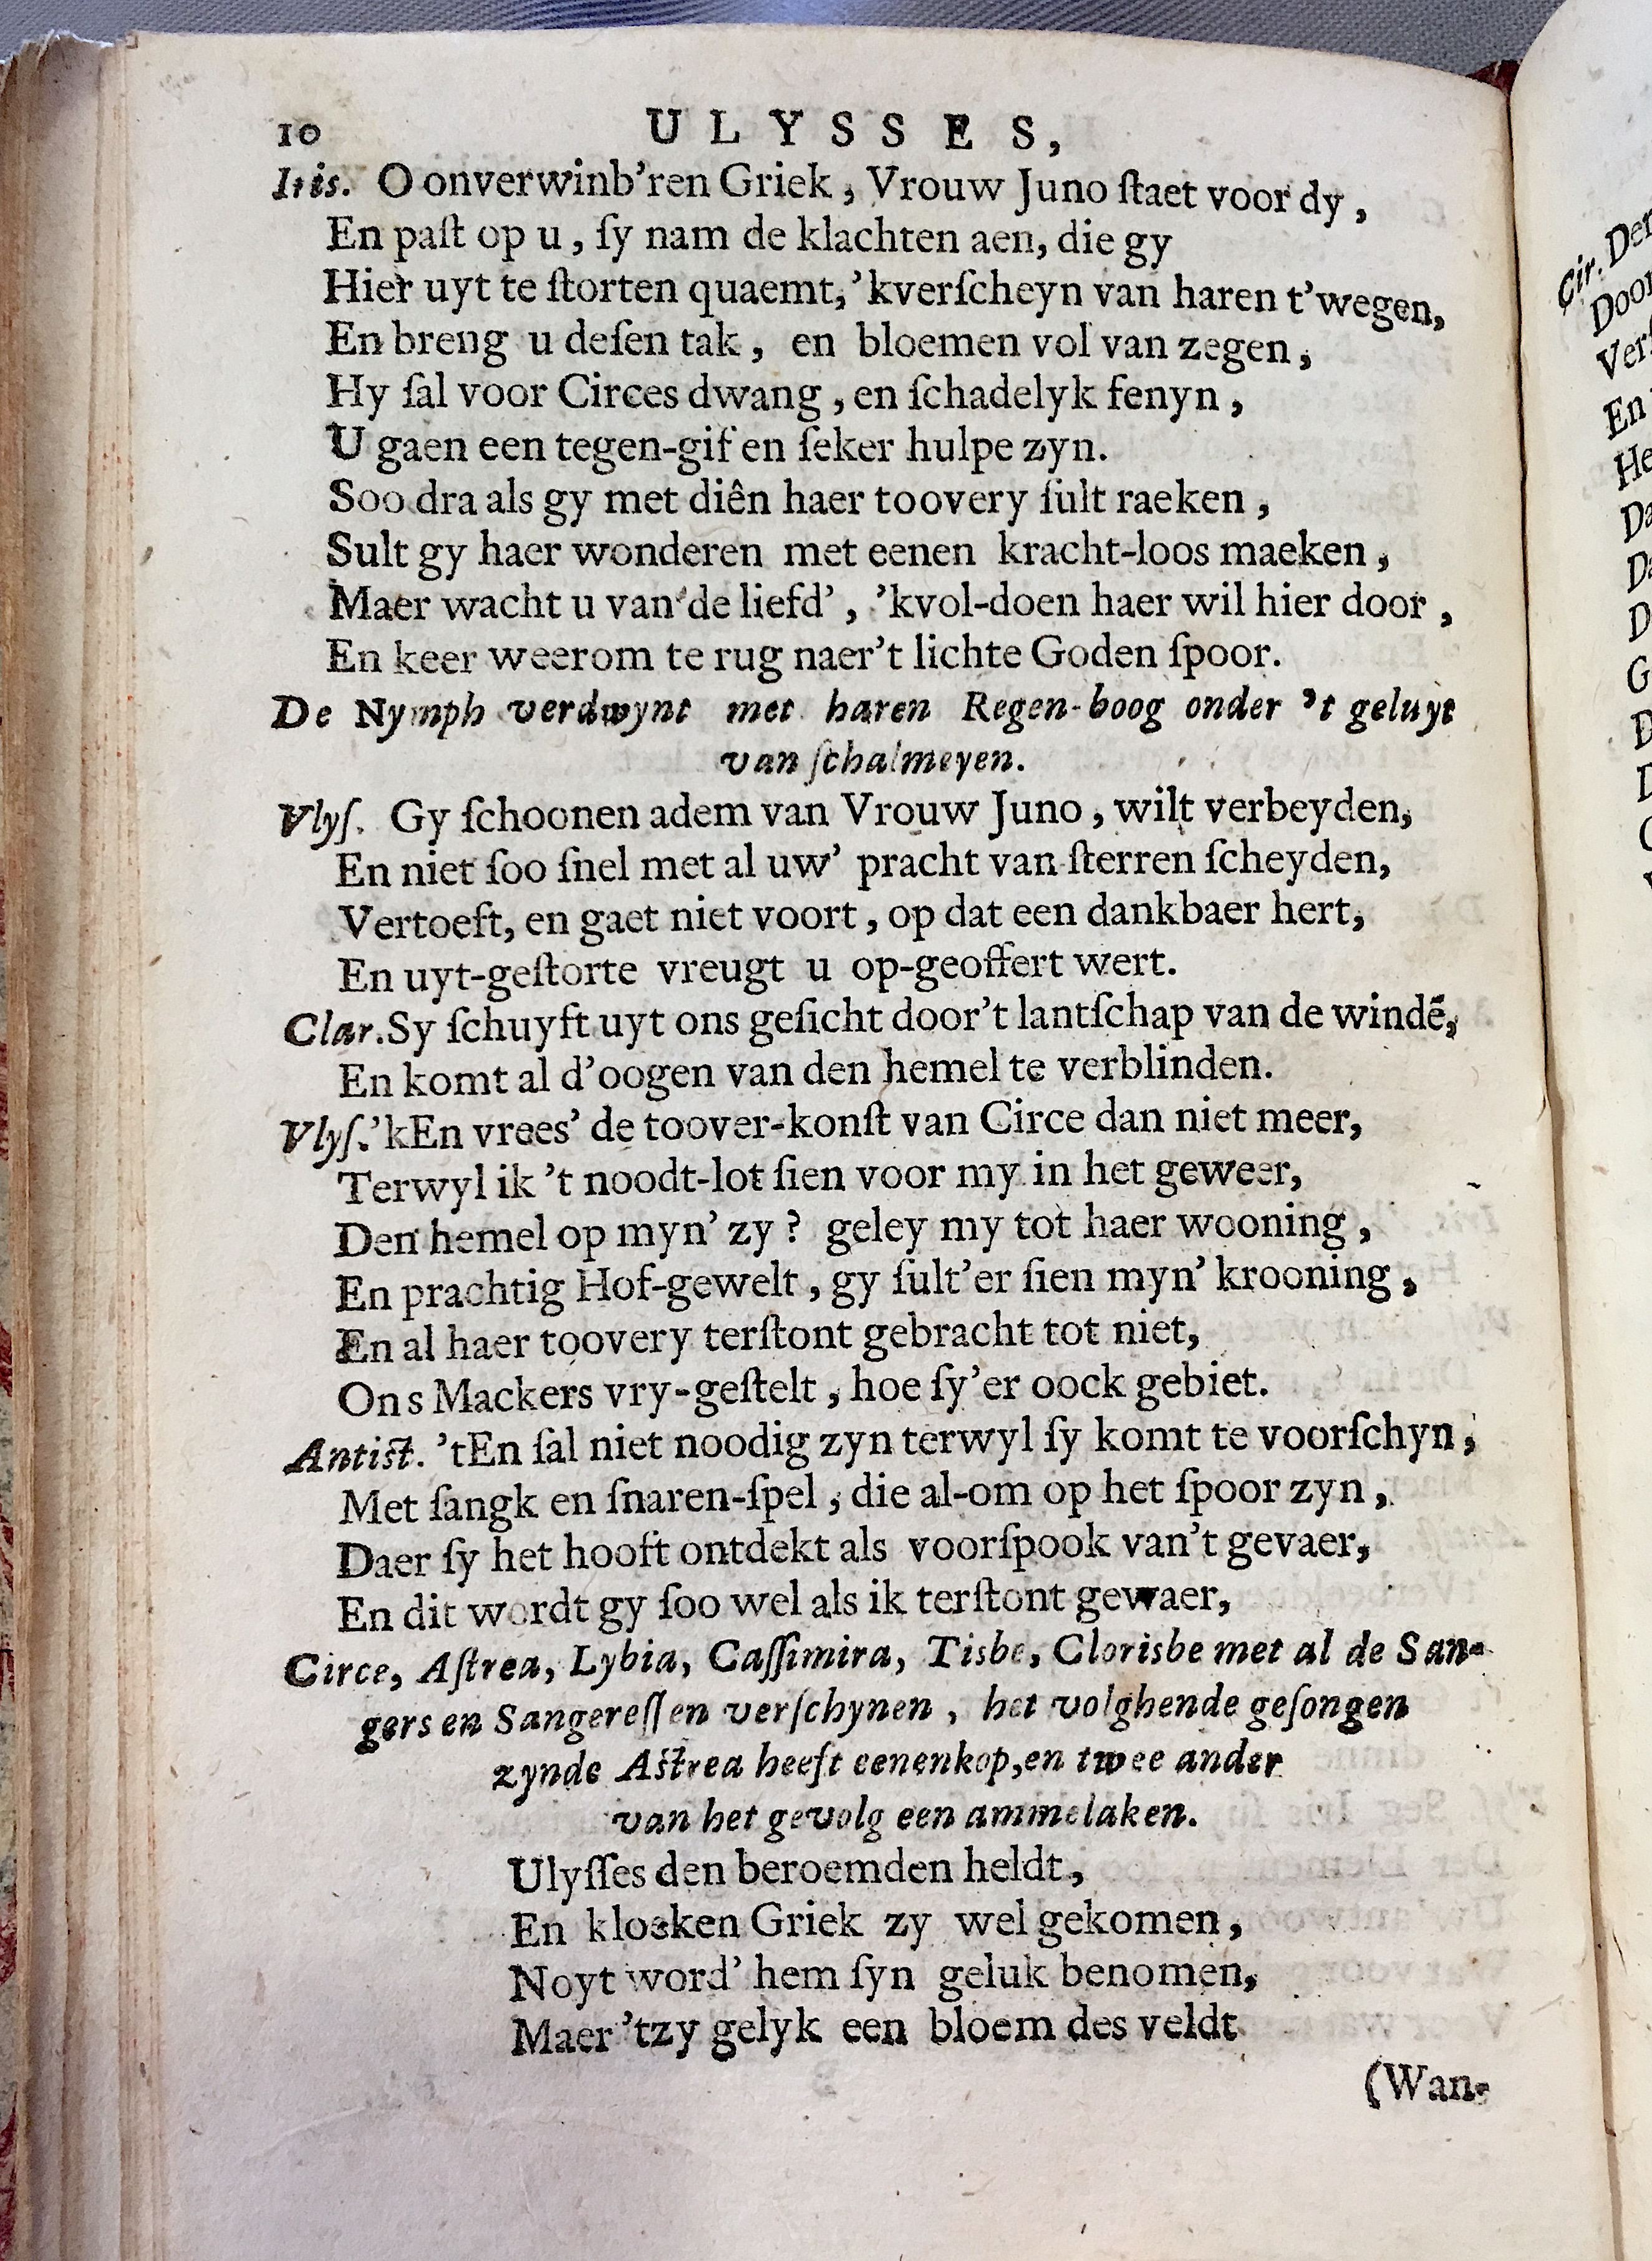 10 ULYSSES,
Iris. O onverwinb'ren Griek, Vrouw Juno ſtaet voor dy,
En paſt op u, ſy nam de klachten aen, die gy
Hier uyt te ſtorten quaemt, 'kverſcheyn van haren t'wegen,
En breng u deſen tak, en bloemen vol van zegen,
Hy ſal voor Circes dwang, en ſchadelyk fenyn,
U gaen een tegen-gif en ſeker hulpe zyn.
Soo dra als gy met diên haer toovery ſult raeken,
Sult gy haer wonderen met eenen kracht-loos maeken,
Maer wacht u van de liefd', 'kvol-doen haer wil hier door,
En keer weerom te rug naer't lichte Goden ſpoor.
De Nymph verdwynt met haren Regen-boog onder 't geluyt
van ſchalmeyen.
Vlyſ. Gy ſchoonen adem van Vrouw Juno, wilt verbeyden,
En niet ſoo ſnel met al uw' pracht van ſterren ſcheyden,
Vertoeft, en gaet niet voort, op dat een dankbaer hert,
En uyt-geſtorte vreugt u op-geoffert wert.
Clar. Sy ſchuyft uyt ons geſicht door't lantſchap van de windẽ,
En komt al d'oogen van den hemel te verblinden.
Vlyſ. 'kEn vrees' de toover-konſt van Circe dan niet meer,
Terwyl ik 't noodt-lot ſien voor my in het geweer,
Den hemel op myn' zy? geley my tot haer wooning,
En prachtig Hof-gewelt, gy ſult'er ſien myn' krooning,
En al haer toovery terſtont gebracht tot niet,
Ons Mackers vry-geſtelt, hoe ſy'er oock gebiet.
Antiſt. 'tEn ſal niet noodig zyn terwyl ſy komt te voorſchyn,
Met ſangk en ſnaren-ſpel, die al-om op het ſpoor zyn,
Daer ſy het hooft ontdekt als voorſpook van't gevaer,
En dit wordt gy ſoo wel als ik terſtont gewaer,
Circe, Aſtrea, Lybia, Caſſimira, Tisbe, Clorisbe met al de San-
gers en Sangereſſen verſchynen, het volghende geſongen
zynde Aſtrea heeft eenenkop, en twee ander
van het gevolg een ammelaken.
Ulyſſes den beroemden heldt,
En kloeken Griek zy wel gekomen,
Noyt word' hem ſyn geluk benomen,
Maer 'tzy gelyk een bloem des veldt
(Wan-
Cir. Der
Door
Verſ
En
He
Da
D
G
D